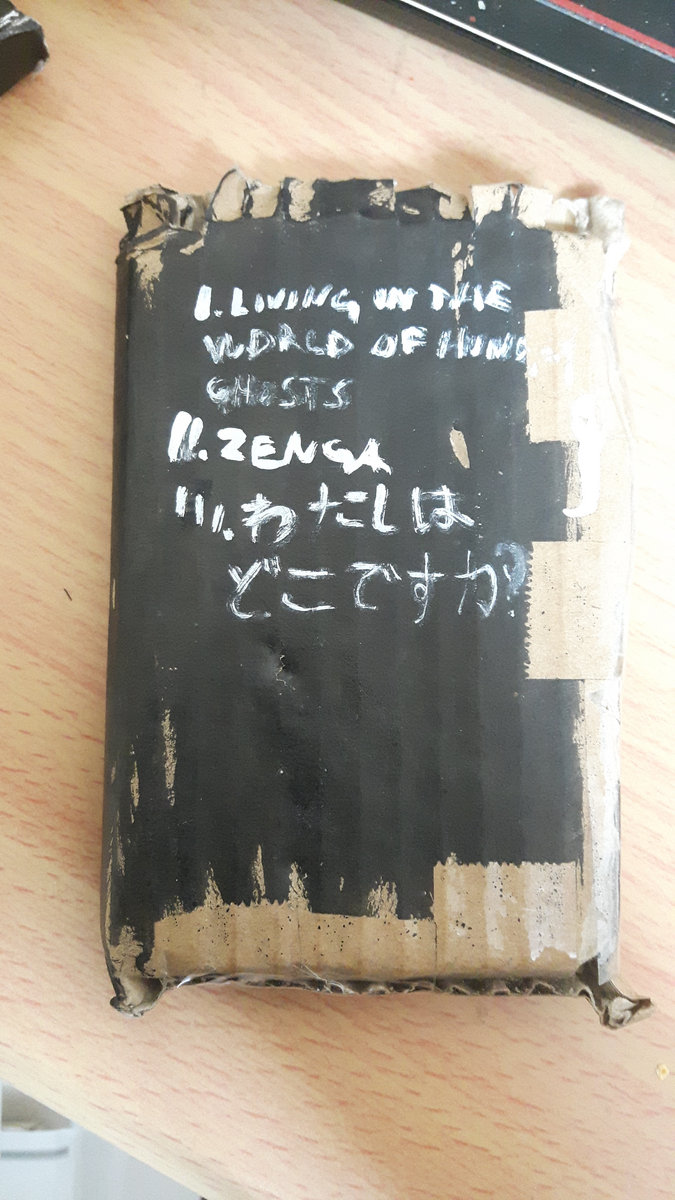 I. LIVING IN THE
WORLD OF HUNG
GHOSTS
II. ZENGA
III. わたしは
どこですか?